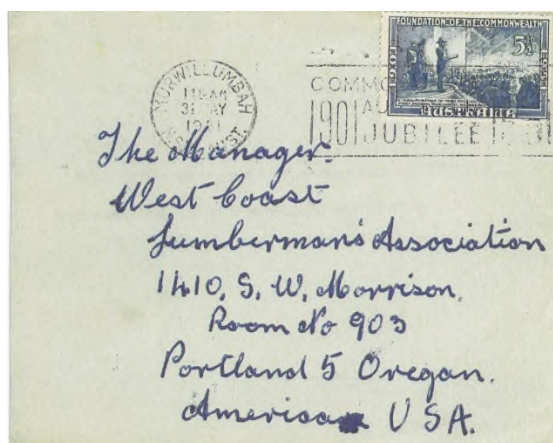 FOUNDATION OF THE COMMONWEALTH
1901
1951
5½D
AUSTRALIA
MURWILLUMBAH
11 AM
1951
1901
JUBILEE
The Manager.
West Coast
Lumberman's Association
1410. S. W. Morrison.
Room No 903
Portland 5 Oregan.
America USA.